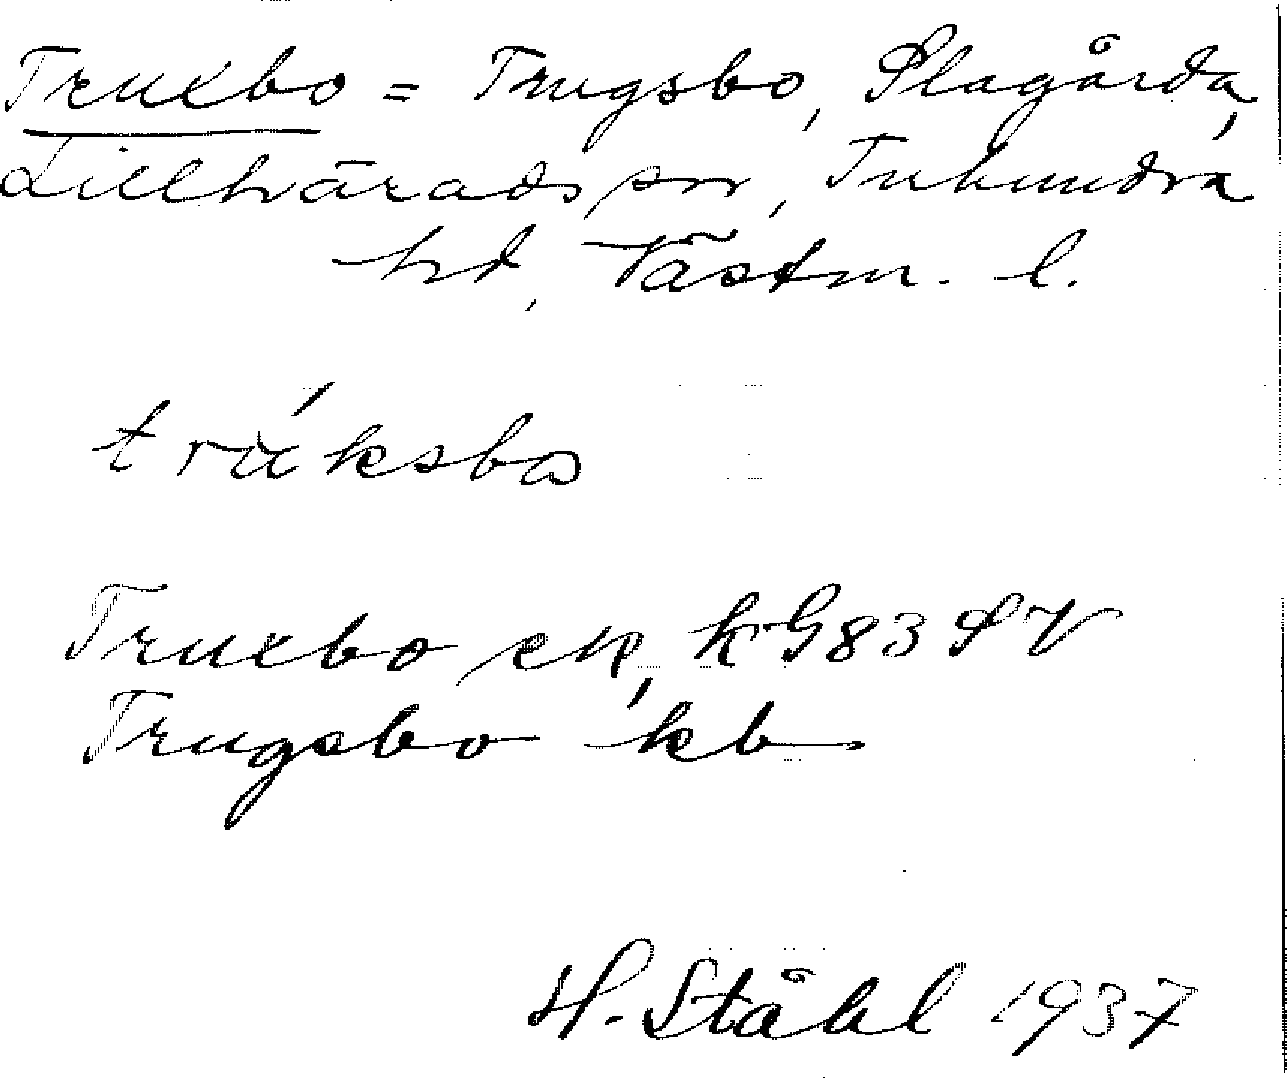 Truxbo = Trugsbo, Slagårda,
Lillhärads sn, Tuhundra
hd, Västm. l.
trúksbo
Truxbo ek, kG83SV
Trugsbo kb
H. Ståhl 1937